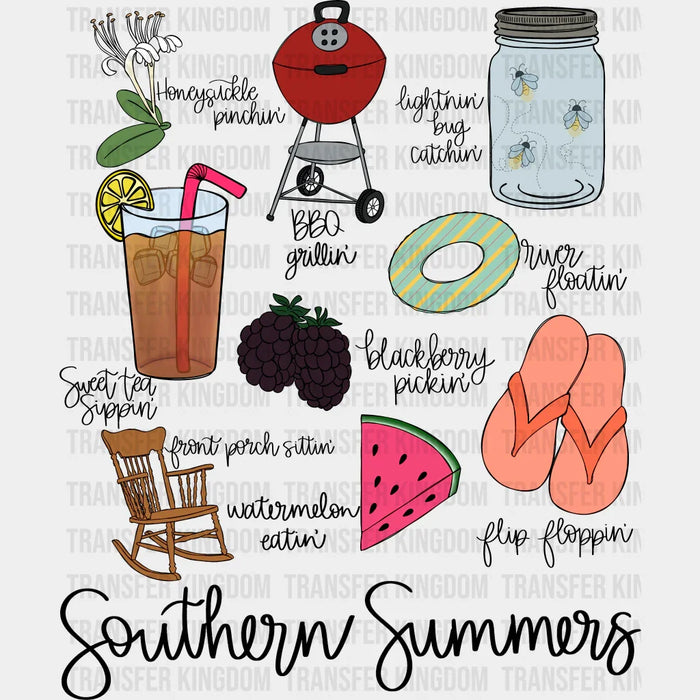 Honeysuckle
pinchin'
lightnin'
bug
catchin'
BBQ
grillin'
river
floatin'
Sweet tea
Sippin'
blackberry
pickin'
front porch sittin'
watermelon
eatin'
flip floppin'
Southern Summers
TRANSFER KINGDOM